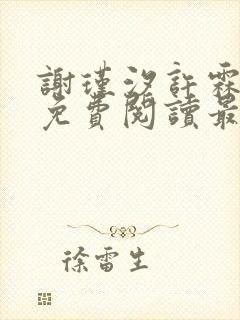 謝瑾汐許霖
免費閱讀最
徐雷生